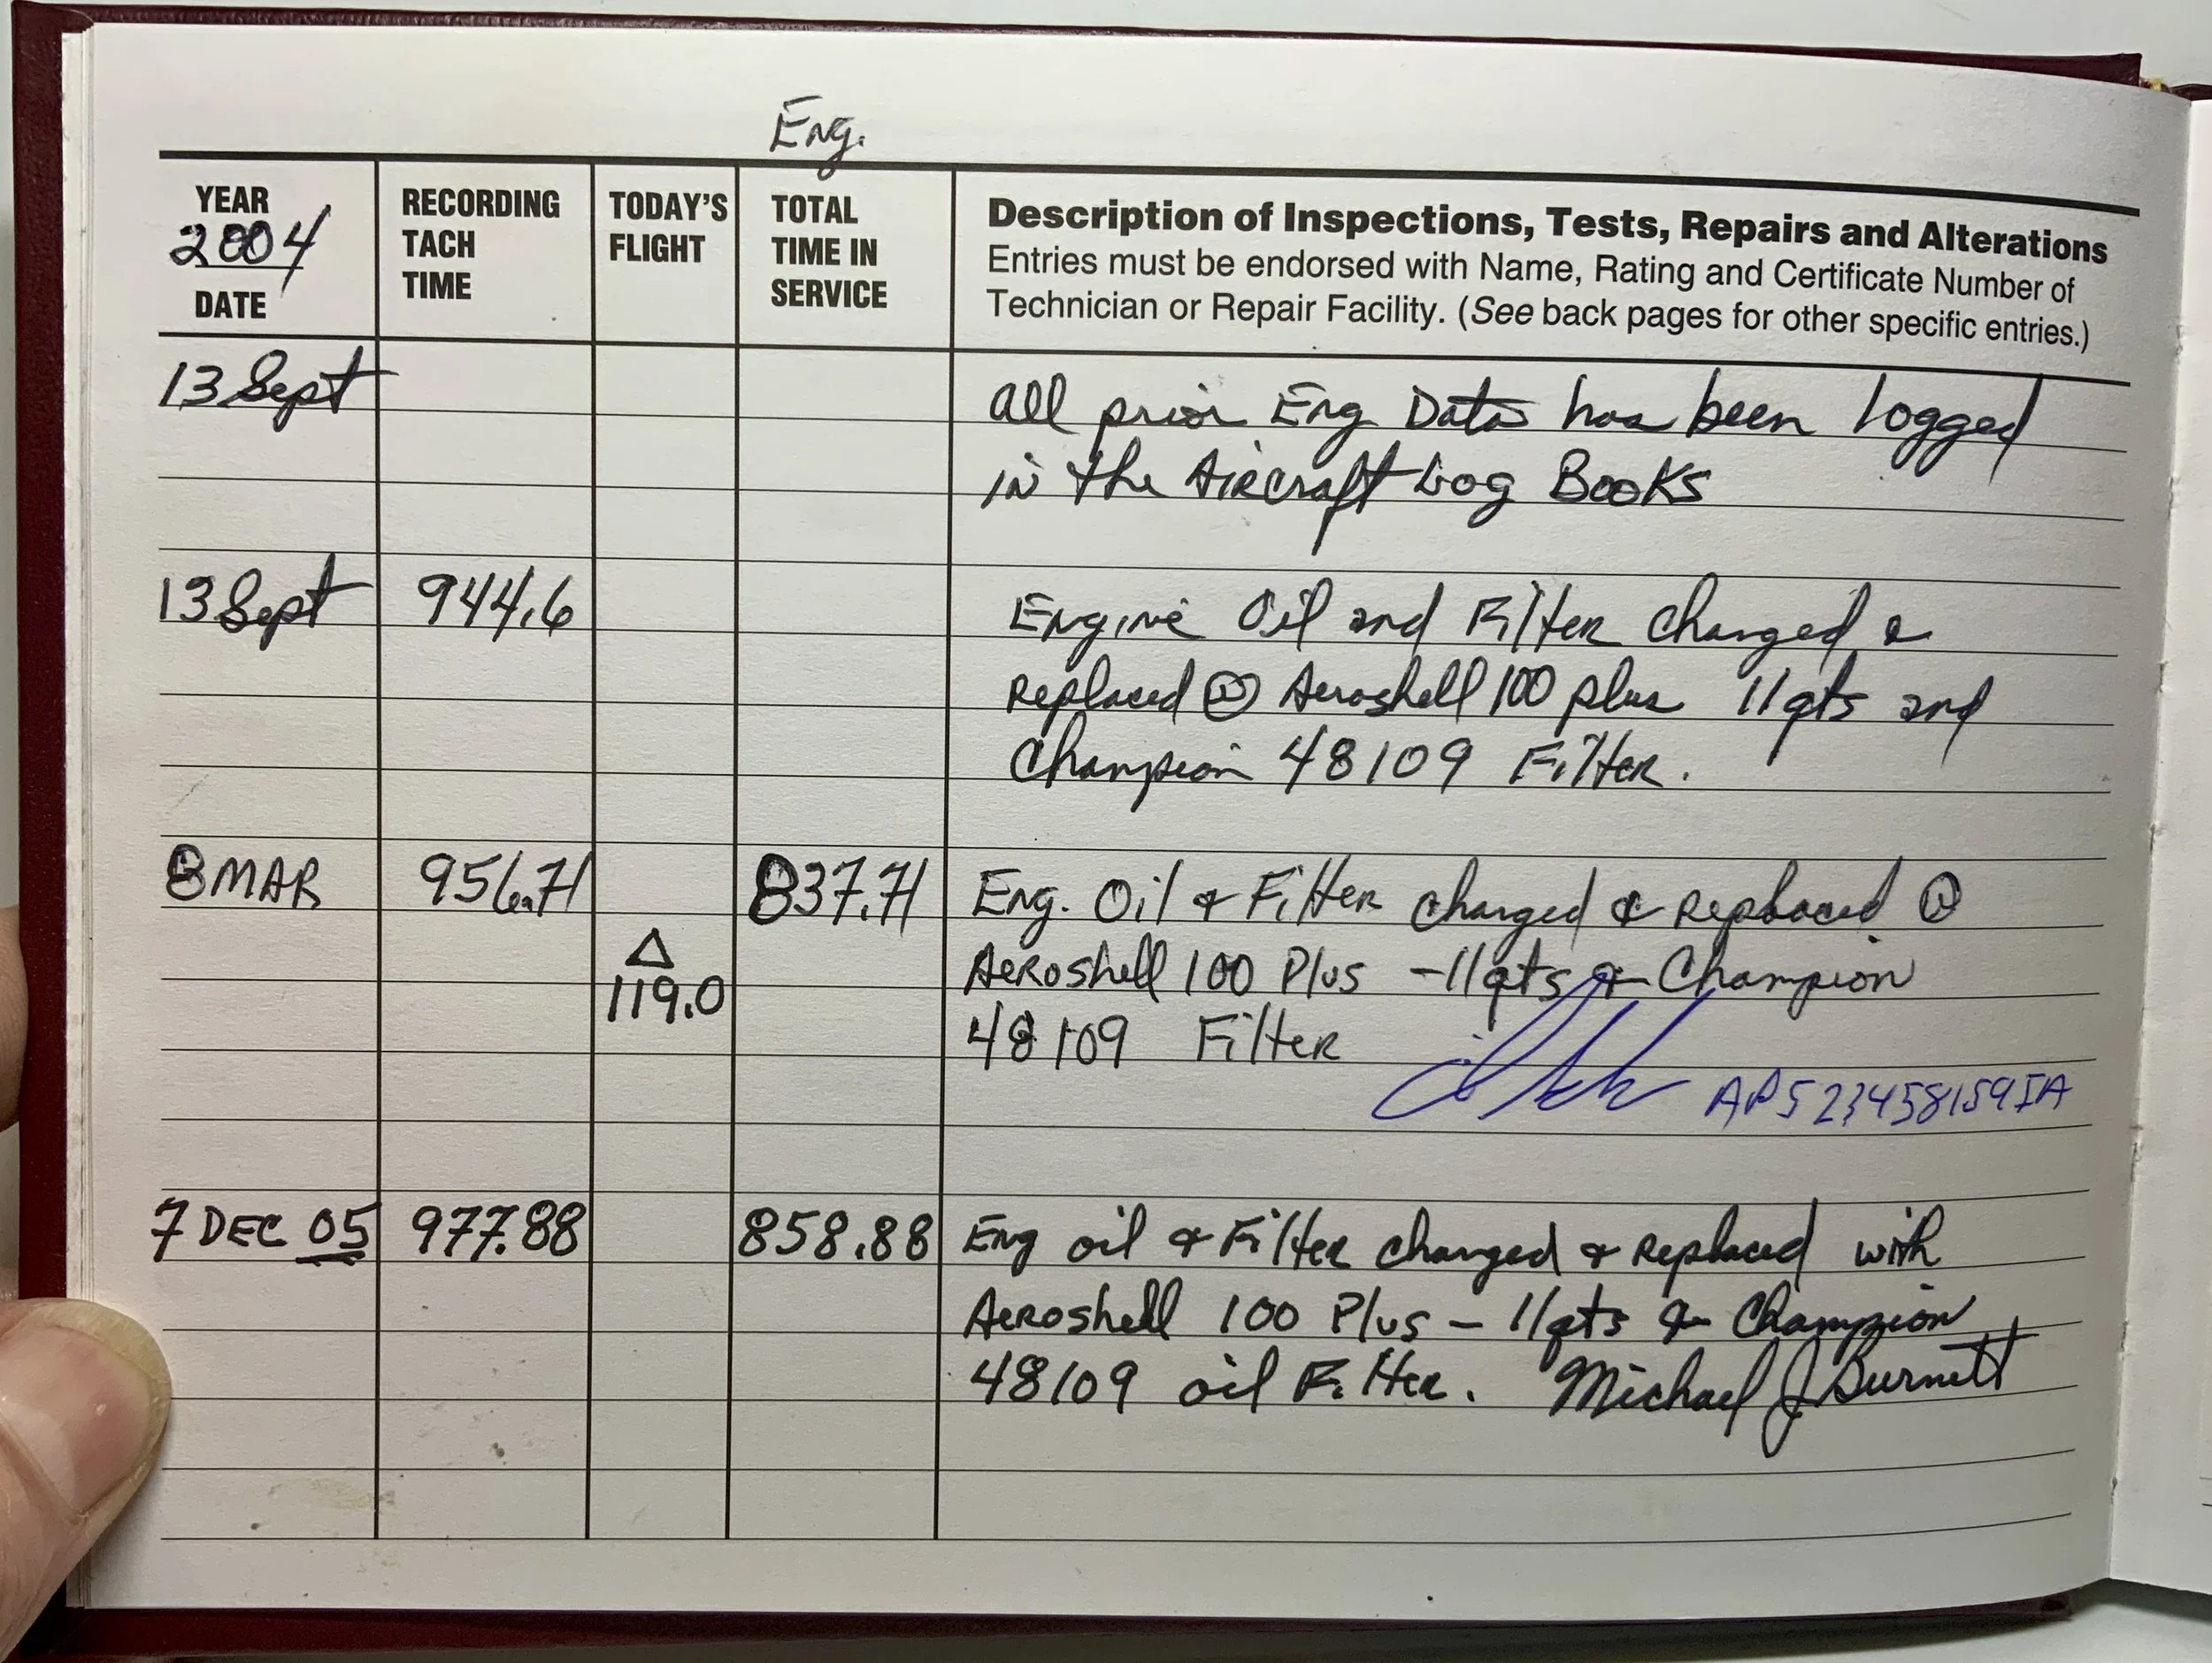 Eng.
YEAR
2004
DATE
RECORDING
TACH
TIME
TODAY'S
FLIGHT
TOTAL
TIME IN
SERVICE
Description of Inspections, Tests, Repairs and Alterations
Entries must be endorsed with Name, Rating and Certificate Number of
Technician or Repair Facility. (See back pages for other specific entries.)
13 Sept
all prior Eng Data has been logged
in the Aircraft Log Books
13 Sept 944.6 Engine Oil and Filter changed &
Replaced W Aeroshell 100 plus 11qts and
Champion 48109 Filter.
8 MAR 956.71 837.71 Eng. Oil & Filter changed & Replaced W
Δ
119.0
Aeroshell 100 Plus - 11qts & Champion
48109 Filter
AP523458159IA
7 DEC 05 977.88 858.88 Eng oil & Filter changed & Replaced with
Aeroshell 100 Plus - 11qts & Champion
48109 oil Filter. Michael J Burnett